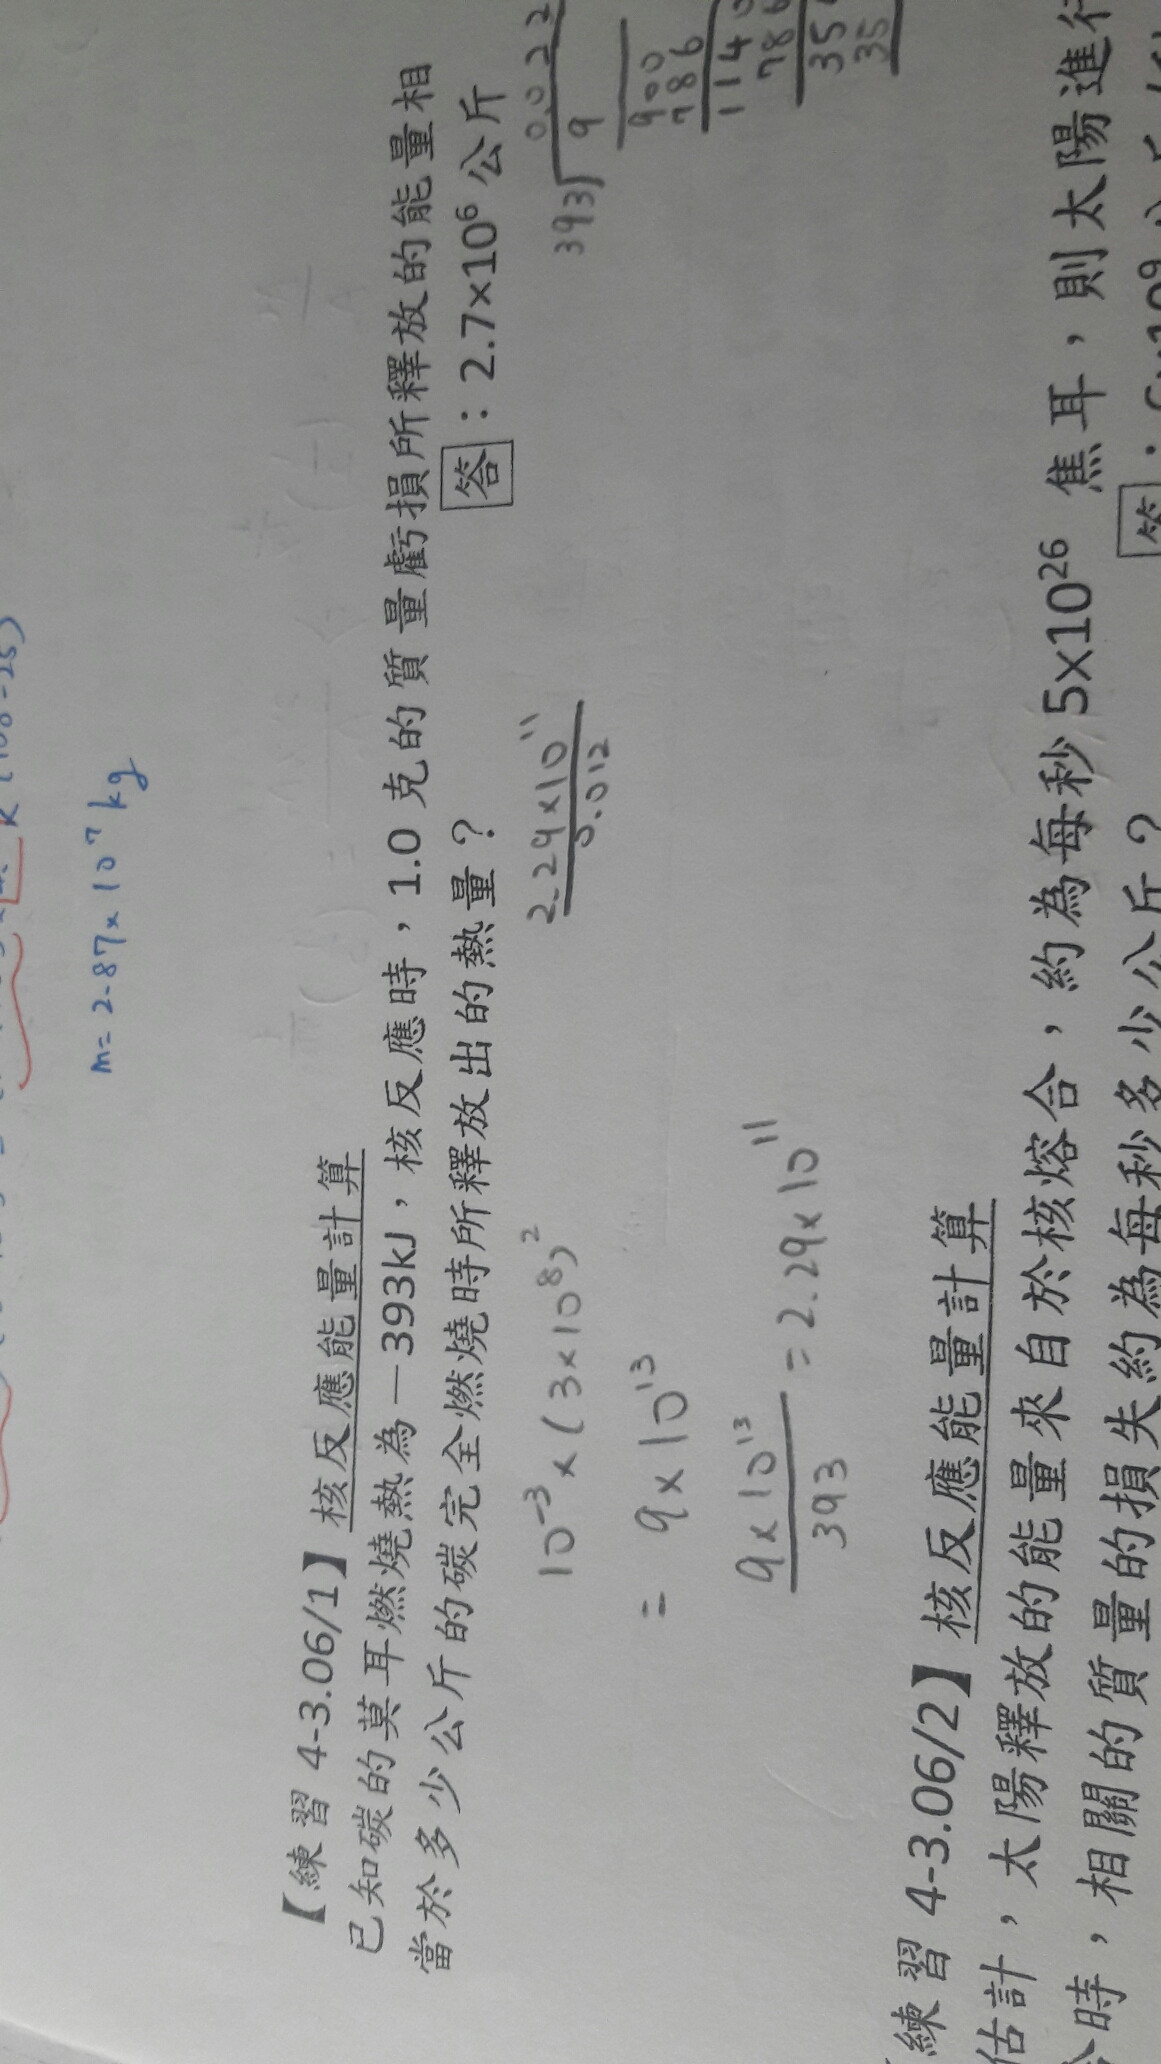 m= 2.87×10⁷ kg
【練習 4-3.06/1】核反應能量計算
已知碳的莫耳燃燒熱為－393kJ，核反應時，1.0 克的質量虧損所釋放的能量相
當於多少公斤的碳完全燃燒時所釋放出的熱量？ 答：2.7×10⁶ 公斤
10⁻³×(3×10⁸)²
= 9×10¹³
9×10¹³
393
=2.29×10¹¹
2.29×10¹¹
0.012
0.022
393)9
900
786
1140
786
35
35
練習 4-3.06/2】核反應能量計算
估計，太陽釋放的能量來自於核熔合，約為每秒 5×10²⁶ 焦耳，則太陽進行
時，相關的質量的損失約為每秒多少公斤？ 答：